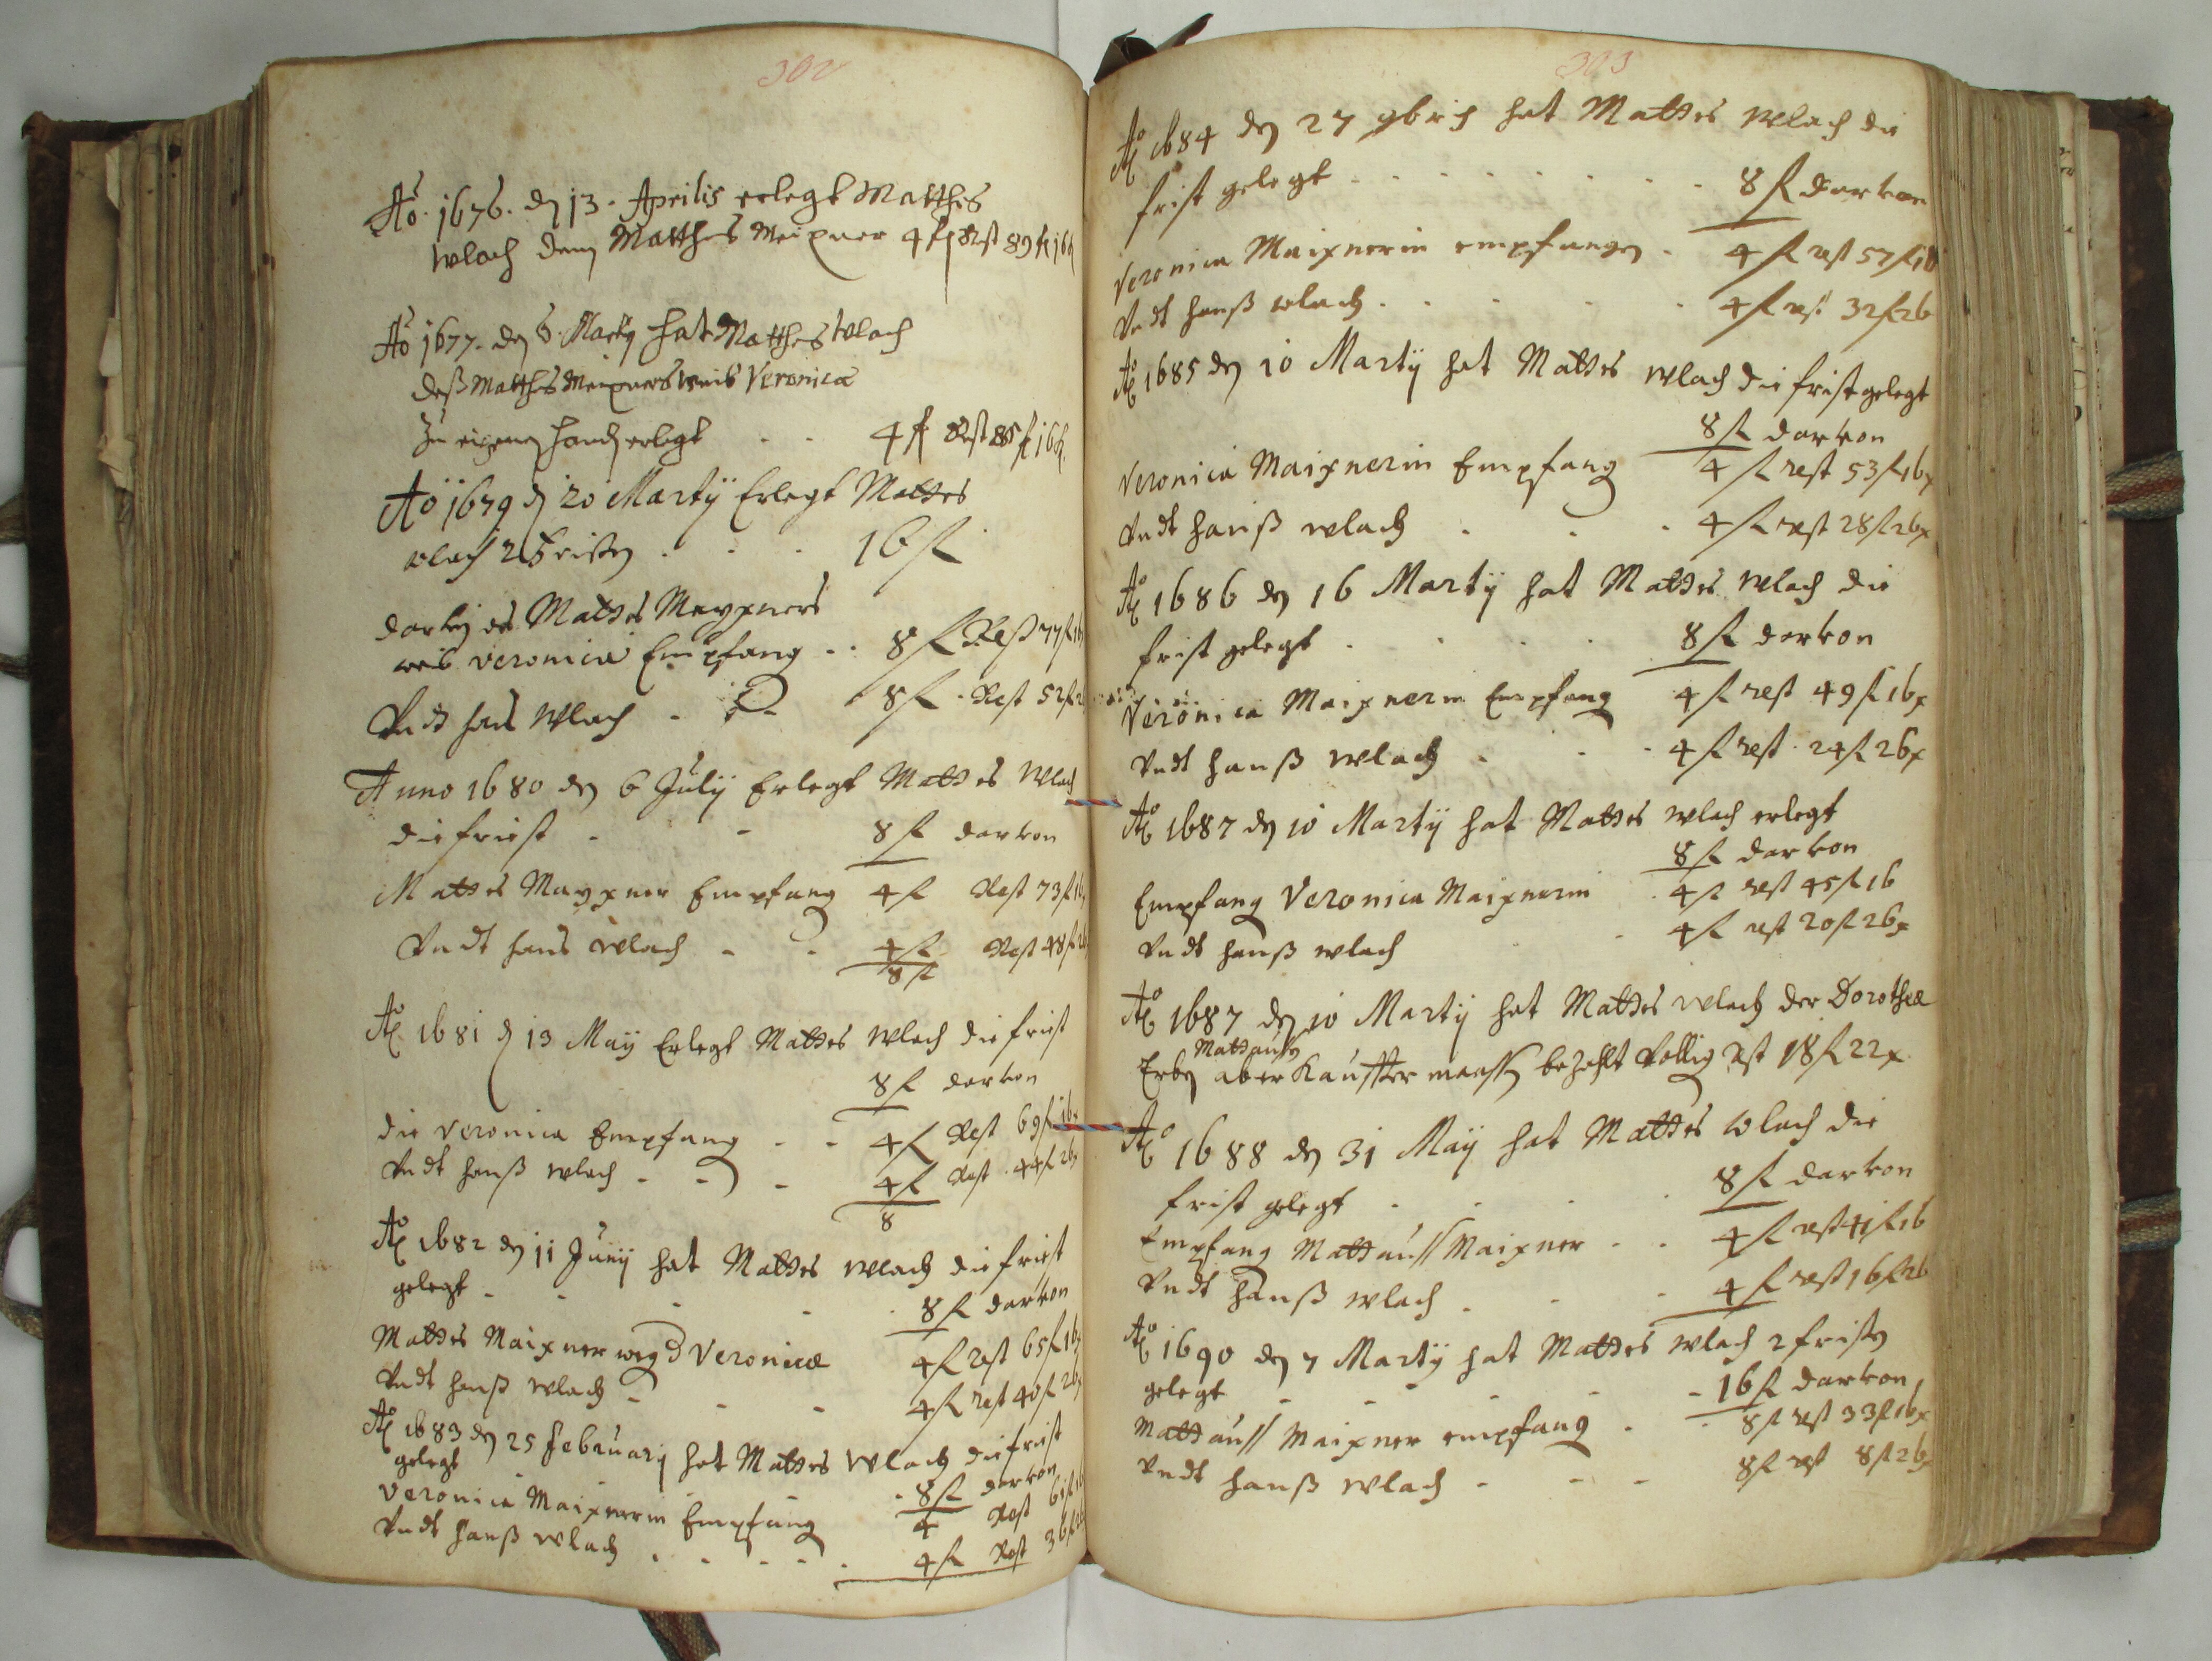 302
Ao. 1676. dz 13. Aprilis erlegt Matthes
Wlach dem Matthes Meixner 4 fl Rest 89 fl 16
Ao 1677. den 6. Marty hat Matthes Wlach
deß Matthes Meixners weib Veronica
zu eigenen Handen erlegt - - 4 fl Rest 85 fl 16
Ao 1679 d 20 Martÿ Erlegt Mattes
wlach 2 Fristen . - . 16 fl
Mattes Maÿxners
weib Veronica Empfang - . 8 fl Rest 77 fl 16
Vndt hans Wlach - - 8 fl - Rest 52 fl
Anno 1680 den 6 Julÿ Erlegt Mattes Wlach
die friest - - 8 fl darvon
Mattes Maÿxner Empfang 4 fl Rest 73 fl 16
Vndt hans Wlach - - 4 fl Rest 48 fl 26
8 fl
Ao 1681 d 13 Maÿ Erlegt Mattes Wlach die friest
8 fl darvon
die Veronica Empfang - - 4 fl Rest 69 fl 16x
Vndt hanß wlach - - - 4 fl Rest . 44 fl 26x
8
Ao 1682 den 11 Junÿ hat Mattes Wlach die friest
gelegt - - - - . 8 fl darvon
Mattes Maixner weg d Veronicæ 4 fl rest 65 fl 16x
Vndt hanß Wlach - - - 4 fl rest 40 fl 26x
Ao 1683 den 25 Februarÿ hat Mattes Wlach die friest
gelegt - 8 fl darvon
Veronica Maixnerin Empfang 4 Rest 61 fl 16
Vndt hanß wlach . - - - . 4 fl Rest 36 fl 26
303
Ao 1684 den 27 9bris hat Mattes Wlach die
frist gelegt . . . . . . . . 8 fl darvon
Veronica Maixnerin empfangen . 4 fl rest 57 fl 16
Vndt hanß wlach . . . . . 4 fl rest 32 fl 26
Ao 1685 den 10 Martÿ hat Mattes Wlach die frist gelegt
8 fl darvon
Veronica Maixnerin Empfang 4 fl rest 53 fl 16x
Vndt hanß wlach . . . 4 fl rest 28 fl 26x
Ao 1686 den 16 Martÿ hat Mattes Wlach die
frist gelegt . . . 8 fl darvon
Veronica Maixnerin Empfang 4 fl rest 49 fl 16x
Vndt hanß wlach . . . 4 fl rest . 24 fl 26x
Ao 1687 den 10 Martÿ hat Mattes Wlach erlegt
8 fl darvon
Empfang Veronica Maixnerin . 4 fl rest 45 fl 16
Vndt hanß wlach - 4 fl rest 20 fl 26x
Ao 1687 den 10 Martÿ hat Mattes Wlach der Dorotheæ
Mattausch
Erben aber Kauffter massen bezahlt Völlig Rest 18 fl 22x
Ao 1688 den 31 Maÿ hat Mattes Wlach die
frist gelegt . . . . 8 fl darvon
Empfang Mattauss Maixner - . 4 fl rest 41 fl 16
Vndt hanß wlach . . . 4 fl rest 16 fl 26
Ao 1690 den 7 Martÿ hat Mattes Wlach 2 fristen
gelegt - - - - - 16 fl darvon
Mattauss Maixner empfang . . 8 fl rest 33 fl 16x
Vndt hanß wlach - - - 8 fl rest 8 fl 26x